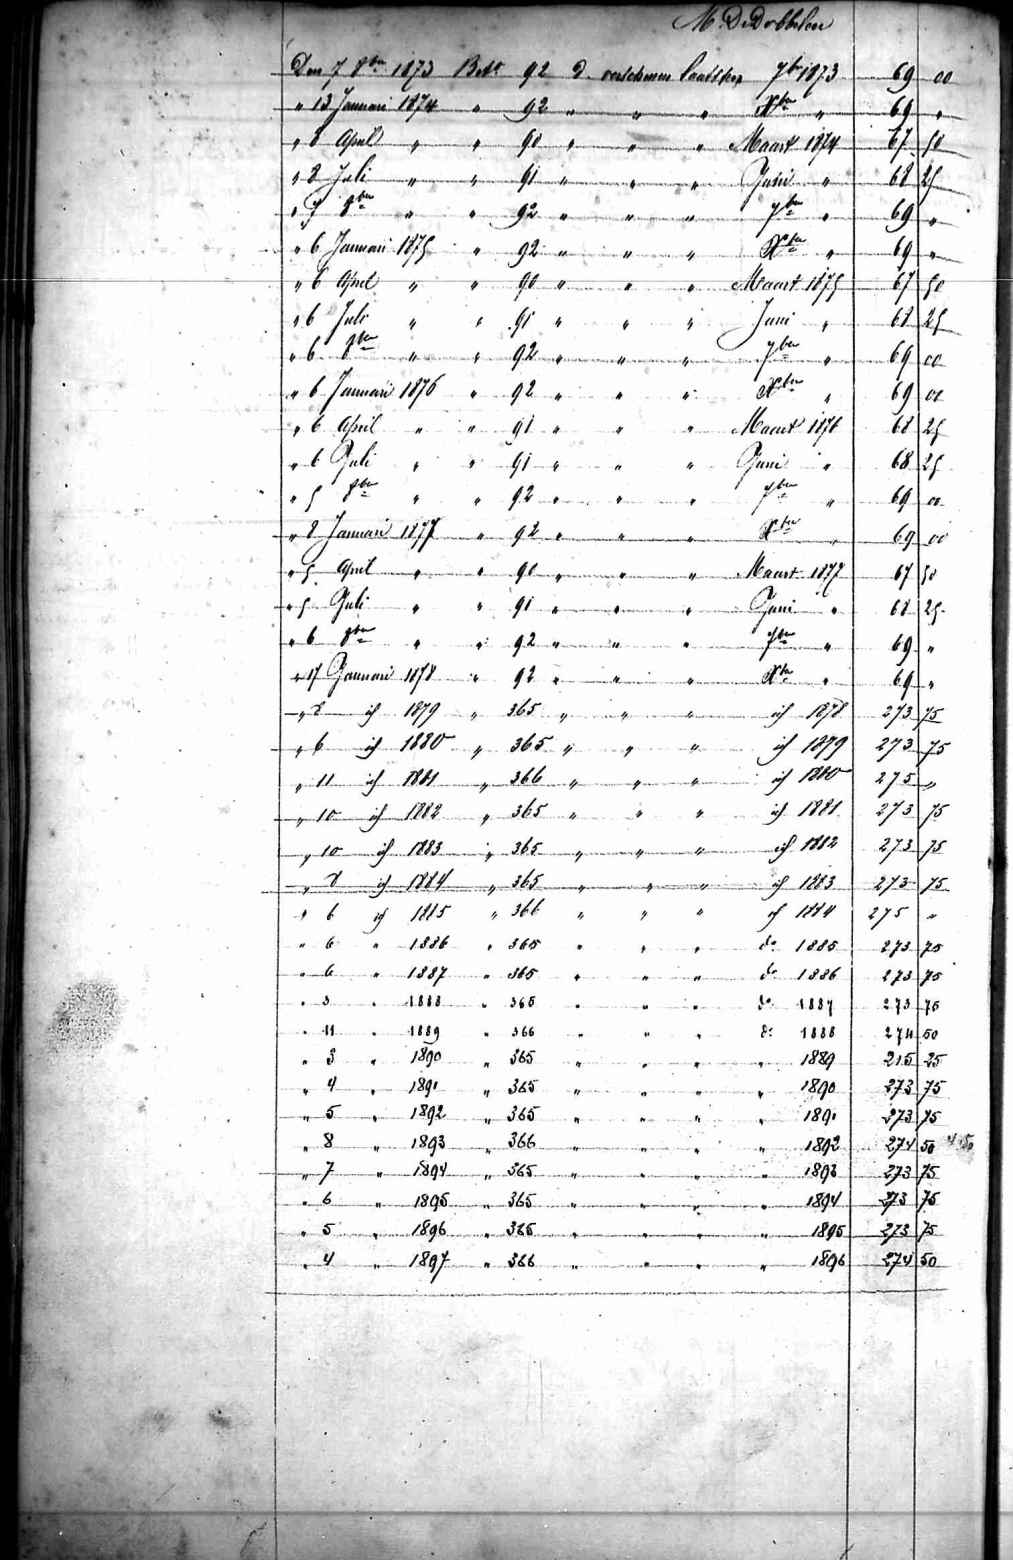 M. D. Dobbelen
Den 7 8ber 1873 Bet. 92 d. verschenen 7br 1873 69 00
" 13 Januari 1874 " 92 " " " Xber " 69 "
" 8 April " " 90 " " " Maart 1874 67 50
" 8 Juli " " 91 " " " Juni " 68 25
" 7 8ber " " 92 " " " 7ber " 69 "
" 6 Januari 1875 " 92 " " " Xber " 69 "
" 6 April " " 90 " " " Maart 1875 67 50
" 6 Juli " " 91 " " " Juni " 68 25
" 6 8ber " " 92 " " " 7ber " 69 00
" 6 Januari 1876 " 92 " " " Xber " 69 00
" 6 April " " 91 " " " Maart 1876 68 25
" 6 Juli " " 91 " " " Juni " 68 25
" 5 8ber " " 92 " " " 7ber " 69 00
" 8 Januari 1877 " 92 " " " Xber " 69 00
" 5 April " " 90 " " " Maart 1877 67 50
" 5 Juli " " 91 " " " Juni " 68 25
" 6 8ber " " 92 " " " 7ber " 69 "
" 17 Januari 1878 " 92 " " " Xber " 69 "
" 8 id 1879 " 365 " " " id 1878 273 75
" 6 id 1880 " 365 " " " id 1879 273 75
" 11 id 1881 " 366 " " " id 1880 275 "
" 10 id 1882 " 365 " " " id 1881 273 75
" 10 id 1883 " 365 " " " id 1882 273 75
" 8 id 1884 " 365 " " " id 1883 273 75
" 6 id 1885 " 366 " " " id 1884 275 "
" 6 " 1886 " 365 " " " do 1885 273 75
" 6 " 1887 " 365 " " " do 1886 273 75
" 3 " 1888 " 365 " " " do 1887 273 75
" 11 " 1889 " 366 " " " do 1888 274 50
" 3 " 1890 " 365 " " " " 1889 215 25
" 4 " 1891 " 365 " " " " 1890 273 75
" 5 " 1892 " 365 " " " " 1891 273 75
" 8 " 1893 " 366 " " " " 1892 274 50
" 7 " 1894 " 365 " " " " 1893 273 75
" 6 " 1895 " 365 " " " " 1894 273 75
" 5 " 1896 " 365 " " " " 1895 273 75
" 4 " 1897 " 366 " " " " 1896 274 50